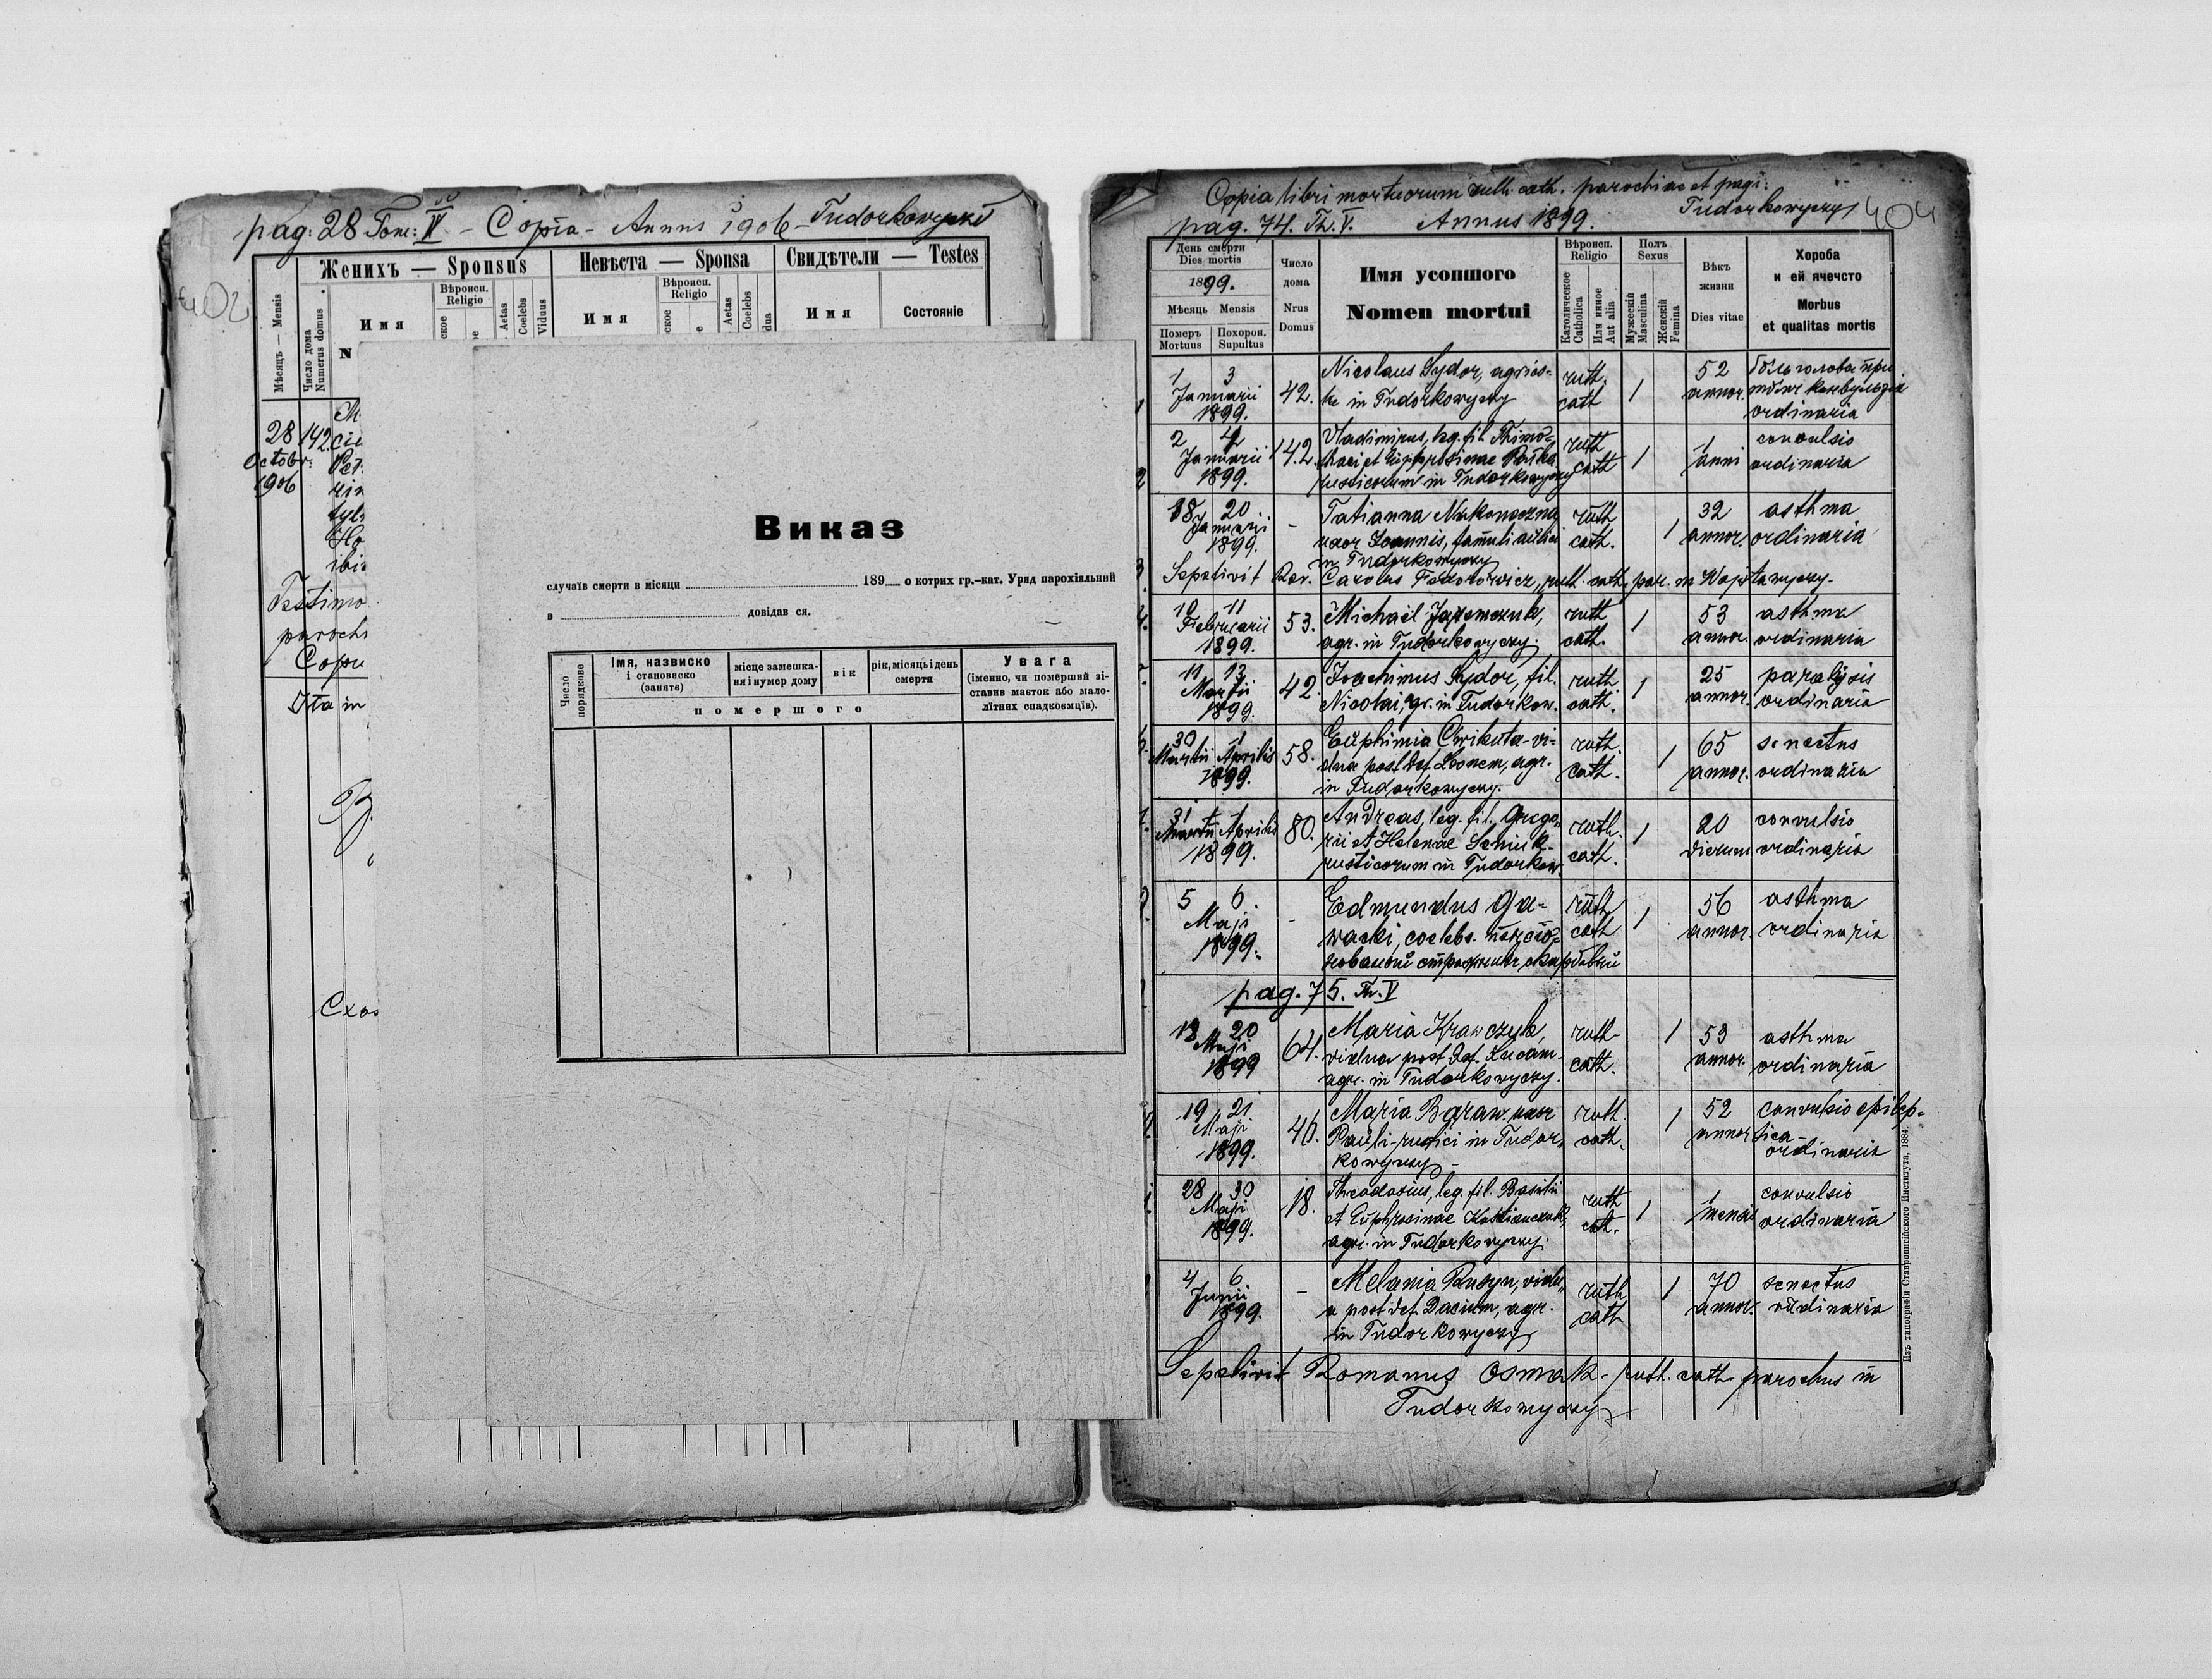 pag: 28 Tom: IV - Copia - Annus 1906 - Tudorkowycze
Женихъ — Sponsus
Невѣста — Sponsa
Свидѣтели — Testes
Мѣсяць — Mensis
Число дома
Numerus domus
Имя
Вѣроисп.
Religio
Aetas
Coelebs
Viduus
Имя
Вѣроисп.
Religio
Aetas
Coelebs
Имя
Состояніе
28
Octobr:
1906
142
Testimo
paroch
Copu
Ita in
Виказ
случаїв смерти в місяци 189 о котрих гр.–кат. Уряд парохіяльний
в довідав ся.
Число
порядкове
Імя, назвиско
і становиско
(занятє)
місце замешка-
ня і нумер дому
вік
рік, місяць і день
смерти
помершого
Увага
(іменно, чи померший зі-
ставив маєток або мало-
літних спадкоємців).
Copia libri mortuorum ruth. cath. parochiae et pagi:
Tudorkowyczy
404
pag. 74. Th. V. Annus 1899.
День смерти
Dies mortis
1899.
Мѣсяць Mensis
Померъ
Mortuus
Похорон.
Sepultus
Число
дома
Nrus
Domus
Имя усопшого
Nomen mortui
Вѣроисп.
Religio
Католическое
Catholica
Или инное
Aut alia
Полъ
Sexus
Мужескій
Masculina
Женскій
Femina
Вѣкъ
жизни
Dies vitae
Хороба
и ей ячечсто
Morbus
et qualitas mortis
1 3
Januarii
1899.
42.
Nicolaus Sydor, agrico-
la in Tudorkowyczy
ruth.
cath
1
52
annor.
ordinaria
2 4
Januarii
1899.
142
Vladimirus, leg. fil. Thimo-
rusticorum in Tudorkowyczy
ruth
cath
1
1
anni
convulsio
ordinaria
18 20
Januarii
1899.
-
Tatianna Nakoneczna
uxor Joannis, famuli
in Tudorkowyczy
ruth
cath.
1
32
annor.
asthma
ordinaria
Sepelivit Rev. Carolus Fedorowicz, ruth. cath. par. in
10 11
Februarii
1899.
53.
Michael Jaremczuk,
agr. in Tudorkowyczy.
ruth
cath.
1
53
annor.
asthma
ordinaria
11 13
Martii
1899.
42.
Joachimus Sydor, fil.
Nicolai, gr. in Tudorkow.
ruth
cath.
1
25
annor.
paralysis
ordinaria
30 1
Martii Aprilis
1899.
58.
Euphimia Cwikuta - vi-
dua post def. Leonem, agr.
in Tudorkowyczy.
ruth.
cath.
1
65
annor.
senectus
ordinaria
31 1
Martii Aprilis
1899.
80.
Andreas, leg. fil. Grego-
rii et Helenae Semiuk -
rusticorum in Tudorkow.
ruth.
cath.
1
20
dierum
convulsio
ordinaria
5 6
Maji
1899.
-
Edmundus Ga-
wacki, coelebs. пенсіо-
ruth
cath
1
56
annor.
asthma
ordinaria
pag. 75. Th. V
20
Maji
1899
64.
Maria Krawczyk,
vidua post def. Lucam -
agr. in Tudorkowyczy.
ruth-
cath.
1
53
annor.
asthma
ordinaria
19 21
Maji
1899.
46.
Maria Baran, uxor
Pauli - rustici in Tudor-
kowyczy -
ruth.
cath.
1
52
annor.
convulsio epilep-
tica -
ordinaria
28 30
Maji
1899.
18.
Theodosius, leg. fil. Basilii
et Euphrosinae
agr. in Tudorkowyczy.
ruth
cath.
1
1
mensis
convulsio
ordinaria
4 6
Junii
1899.
-
Melania Rusyn, vidu-
a post def. Dacium, agr.
in Tudorkowyczy
ruth
cath
1
70
annor.
senectus
ordinaria
Sepelivit Romanus Osmak - ruth. cath. parochus in
Tudorkowyczy
Изъ типографіи Ставропигійского Института, 1884.